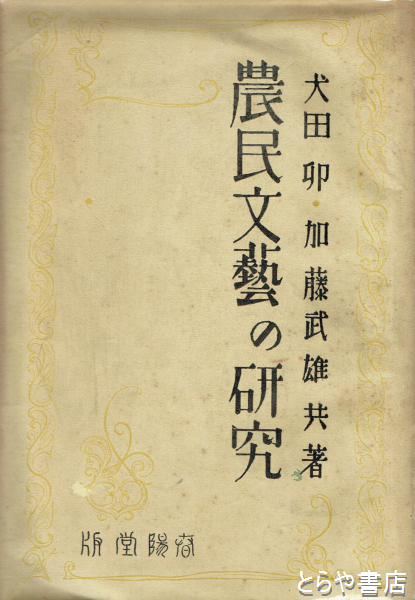 犬田卯・加藤武雄共著
農民文藝の研究
春陽堂版
とらや書店